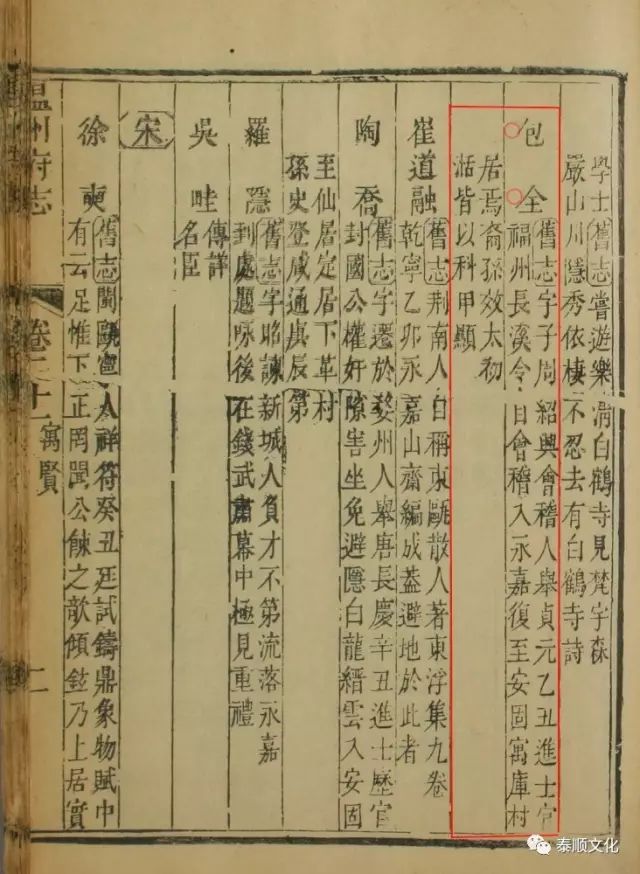 學士舊志嘗遊樂清白鶴寺見梵宇森
嚴山川隱秀依棲不忍去有白鶴寺詩
包全舊志字子周紹興會稽人舉貞元乙丑進士官
福州長溪令自會稽入永嘉復至安固寓庫村
居焉裔孫效太初
湉皆以科甲顯
崔道融舊志荆南人自稱東甌散人著東浮集九卷
乾寧乙卯永嘉山齋編成葢避地於此者
陶喬舊志字遷於婺州人舉唐長慶辛丑進士歷官
封國公權奸陰害坐免避隱白龍縉雲入安固
至仙居定居下革村
孫史登咸通庚辰第
羅隱舊志字昭諫新城人負才不第流落永嘉
到處題咏後在錢武肅幕中極見重禮
吳畦傳詳
名臣
宋
徐奭舊志閩甌寧人祥符癸丑廷試鑄鼎象物賦中
有云足惟下正罔聞公餗之歆傾鉉乃上居實
溫州府志 卷之十一 寓賢 二
泰顺文化